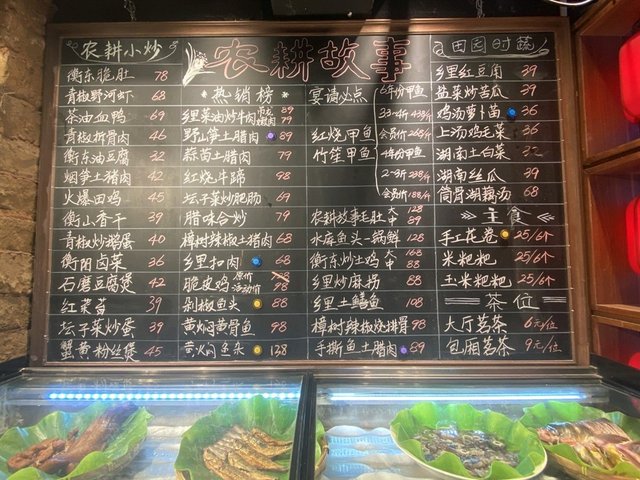 农耕故事
农耕小炒
衡东脆肚 78
青椒野河虾 68
茶油血鸭 69
青椒拆骨肉 46
衡东油豆腐 32
烟笋土猪肉 42
火爆四鸡
衡山香干 39
青椒炒鹅蛋 40
衡阳卤菜 36
石磨豆腐煲 42
红菜苔 39
坛子菜炒蛋 39
蟹黄粉丝煲 45
热销榜
乡里菜油炒牛肉
野山笋土腊肉 89
蒜苗土腊肉 79
红烧牛蹄 98
坛子菜炒肥肠 69
腊味合炒 79
樟树辣椒土猪肉 68
乡里扣肉 68
脆皮鸡 原价 98 活动价 88
剁椒鱼头 98
黄焖黄骨鱼 98
黄焖鱼杂 138
宴请必点
红烧甲鱼
竹笙甲鱼
6年份甲鱼
会员价
2-3斤 238/斤
会员价188/斤
农耕故事毛肚 大128 中89
水库鱼头一锅鲜 128
衡东炒土鸡 大168 中88
乡里炒麻拐 88
乡里土鳝鱼 108
樟树辣椒烧排骨 98
手撕鱼土腊肉 89
田园时蔬
乡里红豆角 39
盐菜炒苦瓜 39
鸡汤萝卜苗 36
上汤鸡毛菜 36
湖南土白菜 32
湖南丝瓜 39
筒骨湖藕汤 68
主食
手工花卷 25/6个
米粑粑 25/6个
玉米粑粑 25/6个
茶位
大厅茗茶 6元/位
包厢茗茶 9元/位